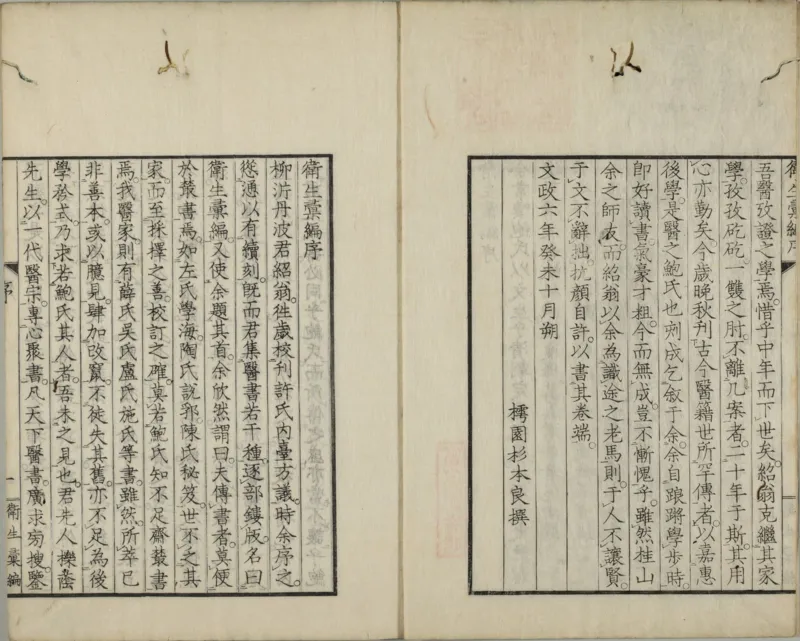 衛生彙編序
吾醫攷證之學焉。惜乎中年而下世矣。紹翁克繼其家
學。孜孜矻矻。一雙之肘。不離几案者。二十年于斯。其用
心亦勤矣。今歲晚秋刊古今醫籍世所罕傳者。以嘉惠
後學。是醫之鮑氏也。刻成乞敘于余。余自踉蹡學步時。
即好讀書。氣豪才粗。今而無成。豈不慚愧乎。雖然桂山
余之師友。而紹翁以余為識途之老馬。則于人不讓賢。
于文不辭拙。抗顏自許。以書其卷端。
文政六年癸未十月朔
樗園杉本良撰
衛生彙編序
柳沂丹波君紹翁。往歲校刊許氏內臺方議。時余序之。
慫慂以有續刻。既而君集醫書若干種。逐部鏤版。名曰
衛生彙編。又使余題其首。余欣然謂曰。夫傳書者。莫便
於叢書焉。如左氏學海。陶氏說郛。陳氏秘笈。世不乏其
家。而至採擇之善。校訂之確。莫若鮑氏知不足齋叢書
焉。我醫家則有薛氏吳氏盧氏施氏等書。雖然。所萃已
非善本。或以臆見。肆加改竄。不徒失其舊。亦不足為後
學矜式。乃求若鮑氏其人者。吾未之見也。君先人櫟蔭
先生。以一代醫宗。專心聚書。凡天下醫書。廣求旁搜。鑒
序
一
衛生彙編